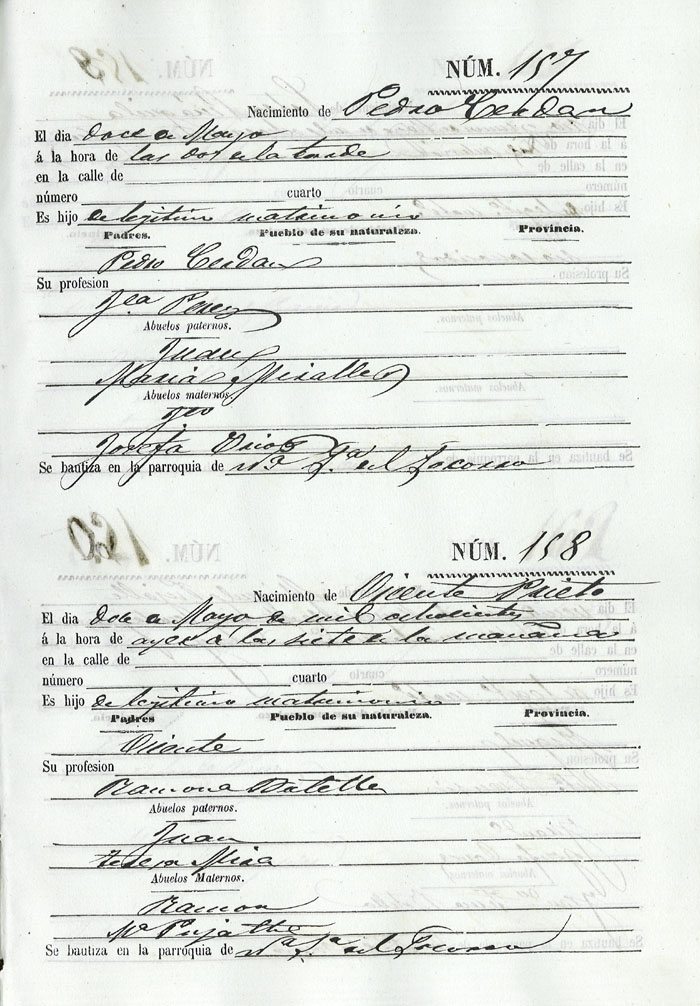 NÚM. 157
Nacimiento de Pedro Cerdan
El dia doce de Mayo
á la hora de las dos de la tarde
en la calle de
número cuarto
Es hijo de legitimo matrimonio
Padres. Pueblo de su naturaleza. Provincia.
Pedro Cerdan
Su profesion
Fca Perez
Abuelos paternos.
Juan
Maria Miralles
Abuelos maternos.
Fco
Josefa
Se bautiza en la parroquia de Ntra Sra del Socorro
NÚM. 158
Nacimiento de Vicente Prieto
El dia doce de Mayo de mil ochocientos
á la hora de ayer á las siete de la mañana
en la calle de
número cuarto
Es hijo de legitimo matrimonio
Padres Pueblo de su naturaleza. Provincia.
Vicente
Su profesion
Ramona Batella
Abuelos paternos.
Juan
Teresa Mira
Abuelos Maternos.
Ramon
Ma
Se bautiza en la parroquia de Na Sa del Socorro